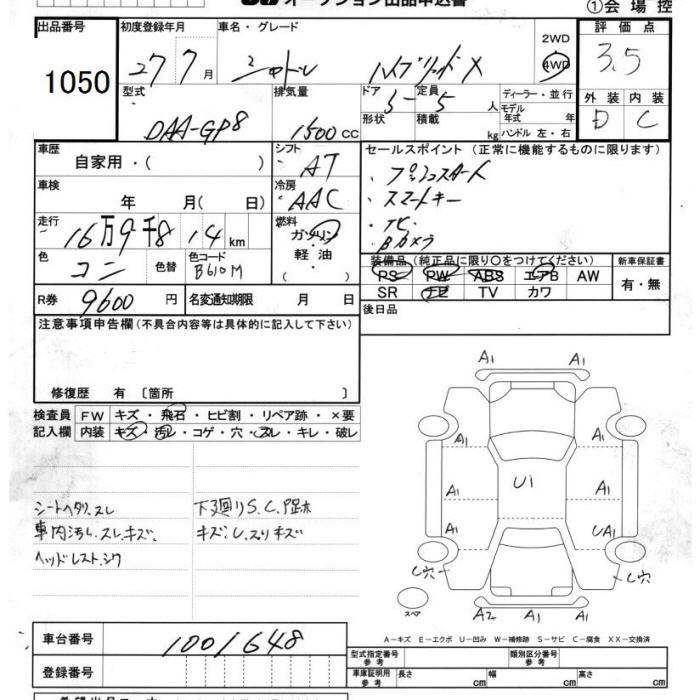 オークション出品申込書
①会場控
出品番号 1050
初度登録年月 27 7 月
車名・グレード シャトル ハイブリッドX
2WD
4WD
評価点 3.5
外装 D 内装 C
型式 DAA-GP8
排気量 1500 CC
ドア 5 形状
定員 5 人 積載 kg
ディーラー・並行
モデル年式 年
ハンドル 左・右
車歴 自家用・( )
シフト AT
セールスポイント (正常に機能するものに限ります)
・プッシュスタート
・スマートキー
・ナビ
・Bカメラ
車検 年 月( 日)
冷房 AAC
走行 16万9千814km
燃料 ガソリン・軽油・( )
色 コン 色替 色コード B610M
装備品 (純正品に限り○をつけてください)
PS PW ABS エアB AW
SR ナビ TV カワ
新車保証書 有・無
R券 9600 円 名変通知期限 月 日
後日品
注意事項申告欄(不具合内容等は具体的に記入して下さい)
修復歴 有 〔箇所 〕
検査員記入欄
FW キズ・飛石・ヒビ割・リペア跡・×要
内装 キズ・汚レ・コゲ・穴・スレ・キレ・破レ
シートヘタリ.スレ
車内汚レ.スレキズ.
ヘッドレスト.シワ
下廻りS.C.
キズ.U.スリキズ
A1 A1
A1 A1
U1
A1 A1
A1 UA1
C穴 C穴
スペア
A2 A1 A1
A-キズ E-エクボ U-凹み W-補修跡 S-サビ C-腐食 XX-交換済
車台番号 1001648
登録番号
型式指定番号 参考 類別区分番号 参考
車庫証明用 参考 長さ cm 幅 cm 高さ cm